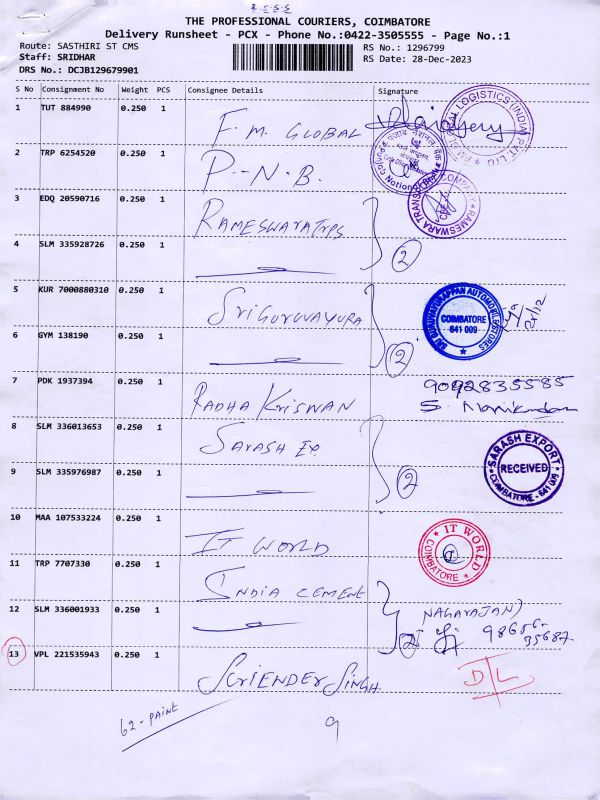 THE PROFESSIONAL COURIERS, COIMBATORE
Delivery Runsheet - PCX - Phone No.:0422-3505555 - Page No.:1
Route: SASTHIRI ST CMS
RS No.: 1296799
Staff: SRIDHAR
RS Date: 28-Dec-2023
DRS No.: DCJB129679901
S No Consignment No Weight PCS Consignee Details Signature
1 TUT 884990 0.250 1 F.M. GLOBAL
2 TRP 6254520 0.250 1 P-N-B.
3 EDQ 20590716 0.250 1 RAMESWARA TRPS
4 SLM 335928726 0.250 1 2
5 KUR 7000880310 0.250 1 SRI GURUVAYURA COIMBATORE 641 009
6 GYM 138190 0.250 1 2
7 PDK 1937394 0.250 1 RADHA KRISWAN 9092835585
S. Manikandan
8 SLM 336013653 0.250 1 SARASH EX. SARASH EXPORT RECEIVED COIMBATORE - 641 009
9 SLM 335976987 0.250 1 2
10 MAA 107533224 0.250 1 IT WORLD IT WORLD COIMBATORE
11 TRP 7707330 0.250 1 INDIA CEMENT
12 SLM 336001933 0.250 1 2 NAGARAJAN
98656-
35687
13 VPL 221535943 0.250 1 SURIENDER SINGH. D/L
62-PAINT
9